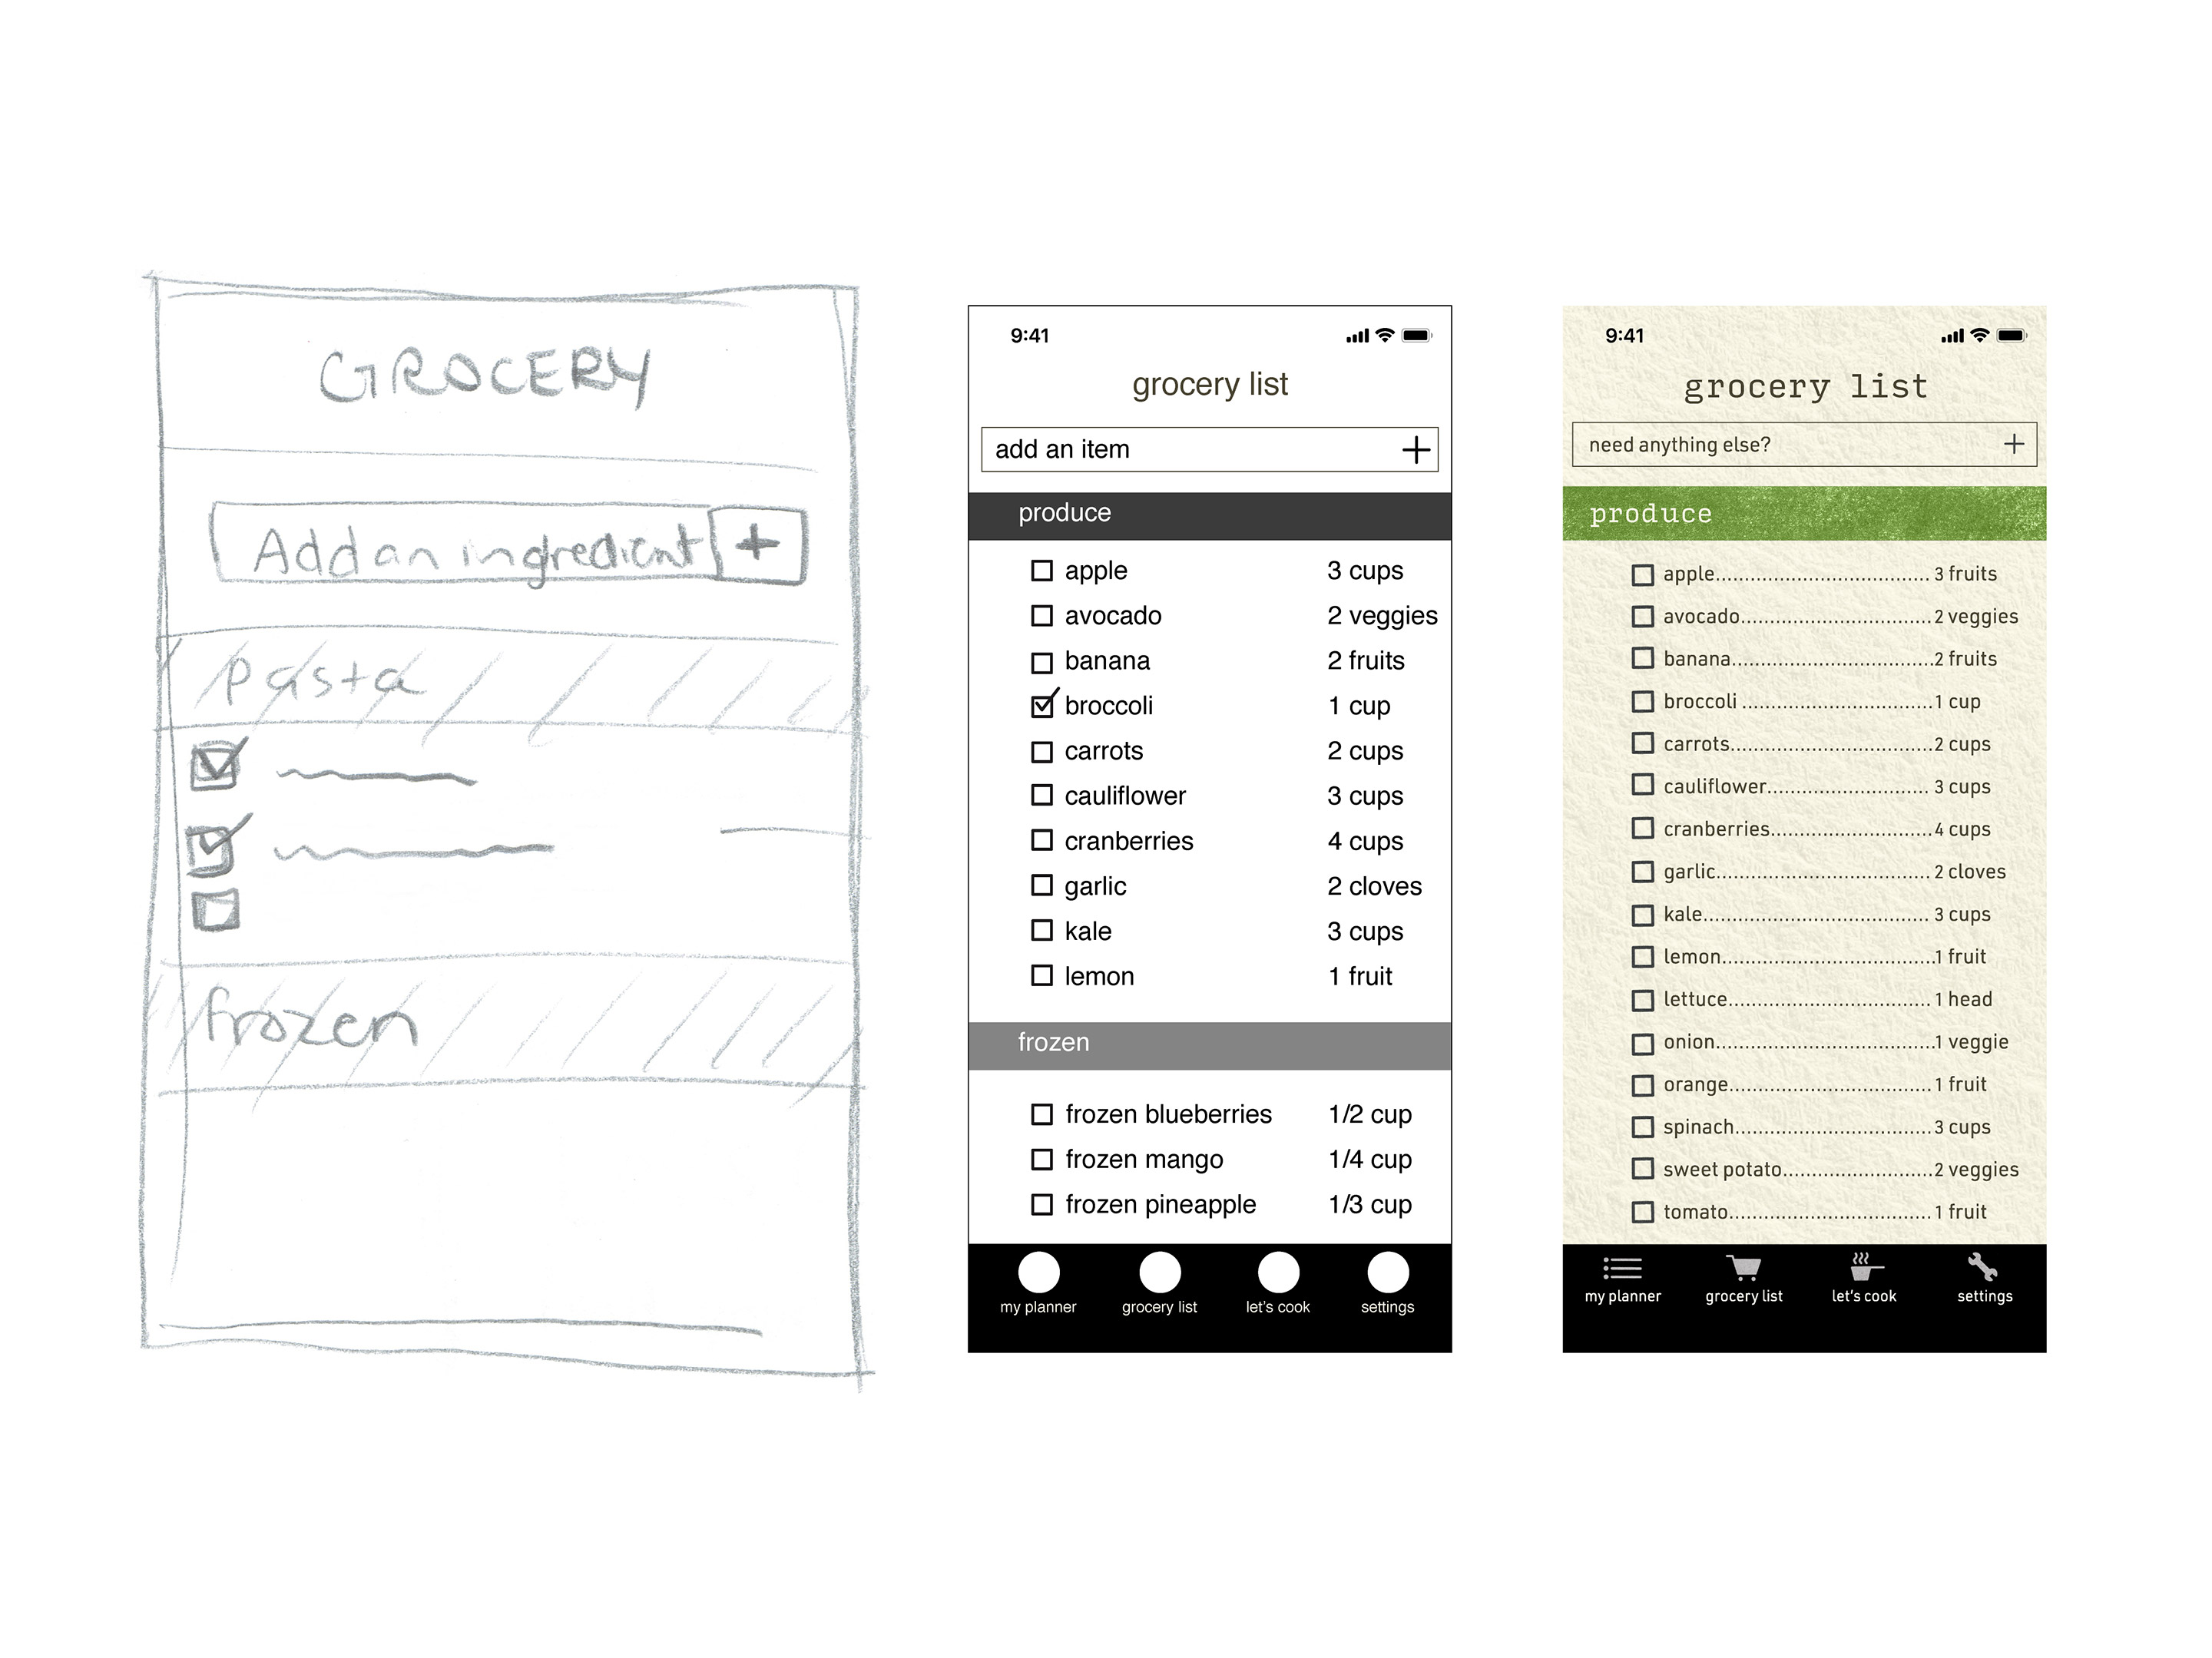 GROCERY
Add an ingredient +
pasta
frozen
9:41
grocery list
add an item +
produce
apple 3 cups
avocado 2 veggies
banana 2 fruits
broccoli 1 cup
carrots 2 cups
cauliflower 3 cups
cranberries 4 cups
garlic 2 cloves
kale 3 cups
lemon 1 fruit
frozen
frozen blueberries 1/2 cup
frozen mango 1/4 cup
frozen pineapple 1/3 cup
my planner grocery list let's cook settings
9:41
grocery list
need anything else? +
produce
apple 3 fruits
avocado 2 veggies
banana 2 fruits
broccoli 1 cup
carrots 2 cups
cauliflower 3 cups
cranberries 4 cups
garlic 2 cloves
kale 3 cups
lemon 1 fruit
lettuce 1 head
onion 1 veggie
orange 1 fruit
spinach 3 cups
sweet potato 2 veggies
tomato 1 fruit
my planner grocery list let's cook settings